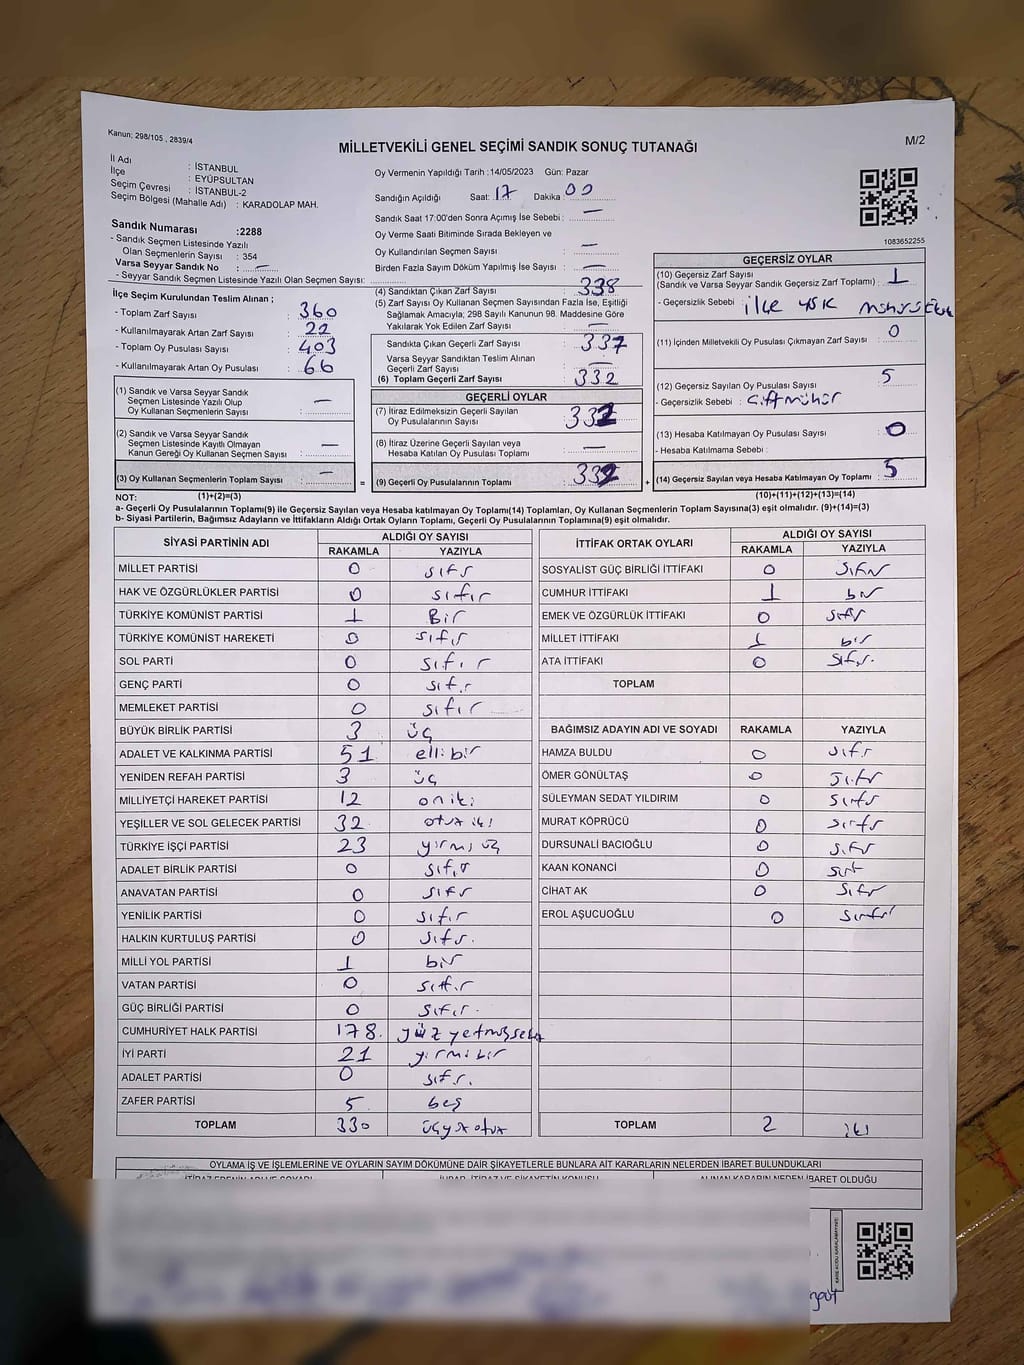 Kanun; 298/105 , 2839/4
MİLLETVEKİLİ GENEL SEÇİMİ SANDIK SONUÇ TUTANAĞI
M/2
İl Adı : İSTANBUL
İlçe : EYÜPSULTAN
Seçim Çevresi : İSTANBUL-2
Seçim Bölgesi (Mahalle Adı) : KARADOLAP MAH.
Oy Vermenin Yapıldığı Tarih :14/05/2023 Gün: Pazar
Sandığın Açıldığı Saat: 17 Dakika 00
Sandık Saat 17:00'den Sonra Açımış İse Sebebi : —
Oy Verme Saati Bitiminde Sırada Bekleyen ve
Oy Kullandırılan Seçmen Sayısı : —
Birden Fazla Sayım Döküm Yapılmış İse Sayısı : —
1083652255
Sandık Numarası :2288
- Sandık Seçmen Listesinde Yazılı
Olan Seçmenlerin Sayısı : 354
Varsa Seyyar Sandık No : —
- Seyyar Sandık Seçmen Listesinde Yazılı Olan Seçmen Sayısı:
İlçe Seçim Kurulundan Teslim Alınan ;
- Toplam Zarf Sayısı : 360
- Kullanılmayarak Artan Zarf Sayısı : 22
- Toplam Oy Pusulası Sayısı : 403
- Kullanılmayarak Artan Oy Pusulası : 66
(1) Sandık ve Varsa Seyyar Sandık
Seçmen Listesinde Yazılı Olup
Oy Kullanan Seçmenlerin Sayısı : —
(2) Sandık ve Varsa Seyyar Sandık
Seçmen Listesinde Kayıtlı Olmayan
Kanun Gereği Oy Kullanan Seçmen Sayısı : —
(3) Oy Kullanan Seçmenlerin Toplam Sayısı : —
(4) Sandıktan Çıkan Zarf Sayısı : 338
(5) Zarf Sayısı Oy Kullanan Seçmen Sayısından Fazla İse, Eşitliği
Sağlamak Amacıyla; 298 Sayılı Kanunun 98. Maddesine Göre
Yakılarak Yok Edilen Zarf Sayısı : —
Sandıkta Çıkan Geçerli Zarf Sayısı : 337
Varsa Seyyar Sandıktan Teslim Alınan
Geçerli Zarf Sayısı : —
(6) Toplam Geçerli Zarf Sayısı : 332
GEÇERLİ OYLAR
(7) İtiraz Edilmeksizin Geçerli Sayılan
Oy Pusulalarının Sayısı : 332
(8) İtiraz Üzerine Geçerli Sayılan veya
Hesaba Katılan Oy Pusulası Toplamı : —
= (9) Geçerli Oy Pusulalarının Toplamı : 332 +
GEÇERSİZ OYLAR
(10) Geçersiz Zarf Sayısı
(Sandık ve Varsa Seyyar Sandık Geçersiz Zarf Toplamı) : 1
- Geçersizlik Sebebi : ilçe YSK
(11) İçinden Milletvekili Oy Pusulası Çıkmayan Zarf Sayısı : 0
(12) Geçersiz Sayılan Oy Pusulası Sayısı : 5
- Geçersizlik Sebebi : Çift mühür
(13) Hesaba Katılmayan Oy Pusulası Sayısı : 0
- Hesaba Katılmama Sebebi :
(14) Geçersiz Sayılan veya Hesaba Katılmayan Oy Toplamı : 5
NOT: (1)+(2)=(3) (10)+(11)+(12)+(13)=(14)
a- Geçerli Oy Pusulasının Toplamı(9) ile Geçersiz Sayılan veya Hesaba katılmayan Oy Toplamı(14) Toplamları, Oy Kullanan Seçmenlerin Toplam Sayısına(3) eşit olmalıdır. (9)+(14)=(3)
b- Siyasi Partilerin, Bağımsız Adayların ve İttifakların Aldığı Ortak Oyların Toplamı, Geçerli Oy Pusulalarının Toplamına(9) eşit olmalıdır.
SİYASİ PARTİNİN ADI ALDIĞI OY SAYISI
RAKAMLA YAZIYLA
MİLLET PARTİSİ 0 sıfır
HAK VE ÖZGÜRLÜKLER PARTİSİ 0 sıfır
TÜRKİYE KOMÜNİST PARTİSİ 1 Bir
TÜRKİYE KOMÜNİST HAREKETİ 0 sıfır
SOL PARTİ 0 sıfır
GENÇ PARTİ 0 sıfır
MEMLEKET PARTİSİ 0 sıfır
BÜYÜK BİRLİK PARTİSİ 3 üç
ADALET VE KALKINMA PARTİSİ 51 ellibir
YENİDEN REFAH PARTİSİ 3 üç
MİLLİYETÇİ HAREKET PARTİSİ 12 oniki
YEŞİLLER VE SOL GELECEK PARTİSİ 32 otuz iki
TÜRKİYE İŞÇİ PARTİSİ 23 yirmi üç
ADALET BİRLİK PARTİSİ 0 sıfır
ANAVATAN PARTİSİ 0 sıfır
YENİLİK PARTİSİ 0 sıfır
HALKIN KURTULUŞ PARTİSİ 0 sıfır.
MİLLİ YOL PARTİSİ 1 bir
VATAN PARTİSİ 0 sıfır
GÜÇ BİRLİĞİ PARTİSİ 0 sıfır.
CUMHURİYET HALK PARTİSİ 178. yüz yetmişsekiz
İYİ PARTİ 21 yirmi bir
ADALET PARTİSİ 0 sıfır.
ZAFER PARTİSİ 5. beş
TOPLAM 330 üçyüzotuz
İTTİFAK ORTAK OYLARI ALDIĞI OY SAYISI
RAKAMLA YAZIYLA
SOSYALİST GÜÇ BİRLİĞİ İTTİFAKI 0 sıfır
CUMHUR İTTİFAKI 1 bir
EMEK VE ÖZGÜRLÜK İTTİFAKI 0 sıfır
MİLLET İTTİFAKI 1 bir
ATA İTTİFAKI 0 sıfır.
TOPLAM
BAĞIMSIZ ADAYIN ADI VE SOYADI RAKAMLA YAZIYLA
HAMZA BULDU 0 sıfır
ÖMER GÖNÜLTAŞ 0 sıfır
SÜLEYMAN SEDAT YILDIRIM 0 sıfır
MURAT KÖPRÜCÜ 0 sıfır
DURSUNALİ BACIOĞLU 0 sıfır
KAAN KONANCİ 0 sıfır
CİHAT AK 0 sıfır
EROL AŞUCUOĞLU 0 sıfır
TOPLAM 2 iki
OYLAMA İŞ VE İŞLEMLERİNE VE OYLARIN SAYIM DÖKÜMÜNE DAİR ŞİKAYETLERLE BUNLARA AİT KARARLARIN NELERDEN İBARET BULUNDUKLARI
İTİRAZ EDENİN ADI VE SOYADI İHBAR, İTİRAZ VE ŞİKAYETİN KONUSU ALINAN KARARIN NEDEN İBARET OLDUĞU